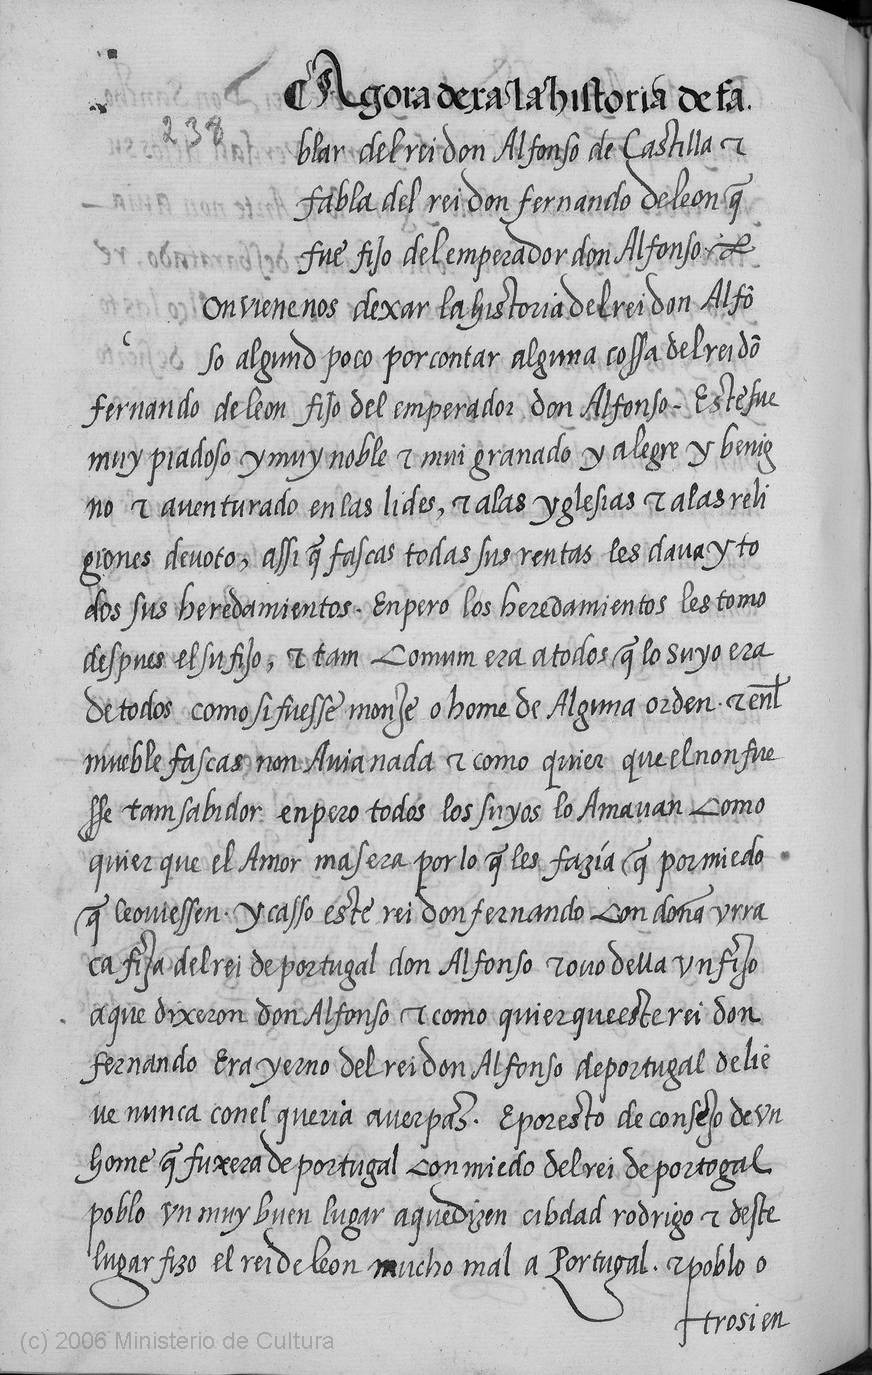 Agora dexa la historia de fa.
238
blar del rei don Alfonso de Castilla τ
fabla del rei don fernando de leon q̃
fue fijo del emperador don Alfonso
c
on viene nos dexar la historia del rei don Alfõ
so algund poco por contar alguna cossa del rei dõ
fernando de leon fijo del emperador don Alfonso. Este fue
muy piadoso y muy noble τ mui granado y alegre y benig
no τ aventurado en las lides, τ alas yglesias τ alas reli
giones devoto, assi q̃ fascas todas sus rentas les dava y to
dos sus heredamientos. Enpero los heredamientos les tomo
despues el su fijo, τ tam Comum era a todos q̃ lo suyo era
de todos como si fuesse monje o home de Alguna orden. τ enl
mueble fascas non Avia nada τ como quier que el non fue
sse tam sabidor enpero todos los suyos lo Amavan Como
quier que el Amor mas era por lo q̃ les fazía q̃ por miedo
q̃ le oviessen. y casso este rei don fernando Con doña vrra
ca fija del rei de portugal don Alfonso τ ovo della vn fijo
a que dixeron don Alfonso τ como quier que este rei don
fernando Era yerno del rei don Alfonso de portugal de liẽ
ve nunca con el queria aver paz. E por esto de consejo de vn
home q̃ fuxera de portugal Con miedo del rei de portogal
poblo vn muy buen lugar a que dizen cibdad rodrigo τ deste
lugar fizo el rei de leon mucho mal a Portugal. τ poblo o
trosi en
(c) 2006 Ministerio de Cultura